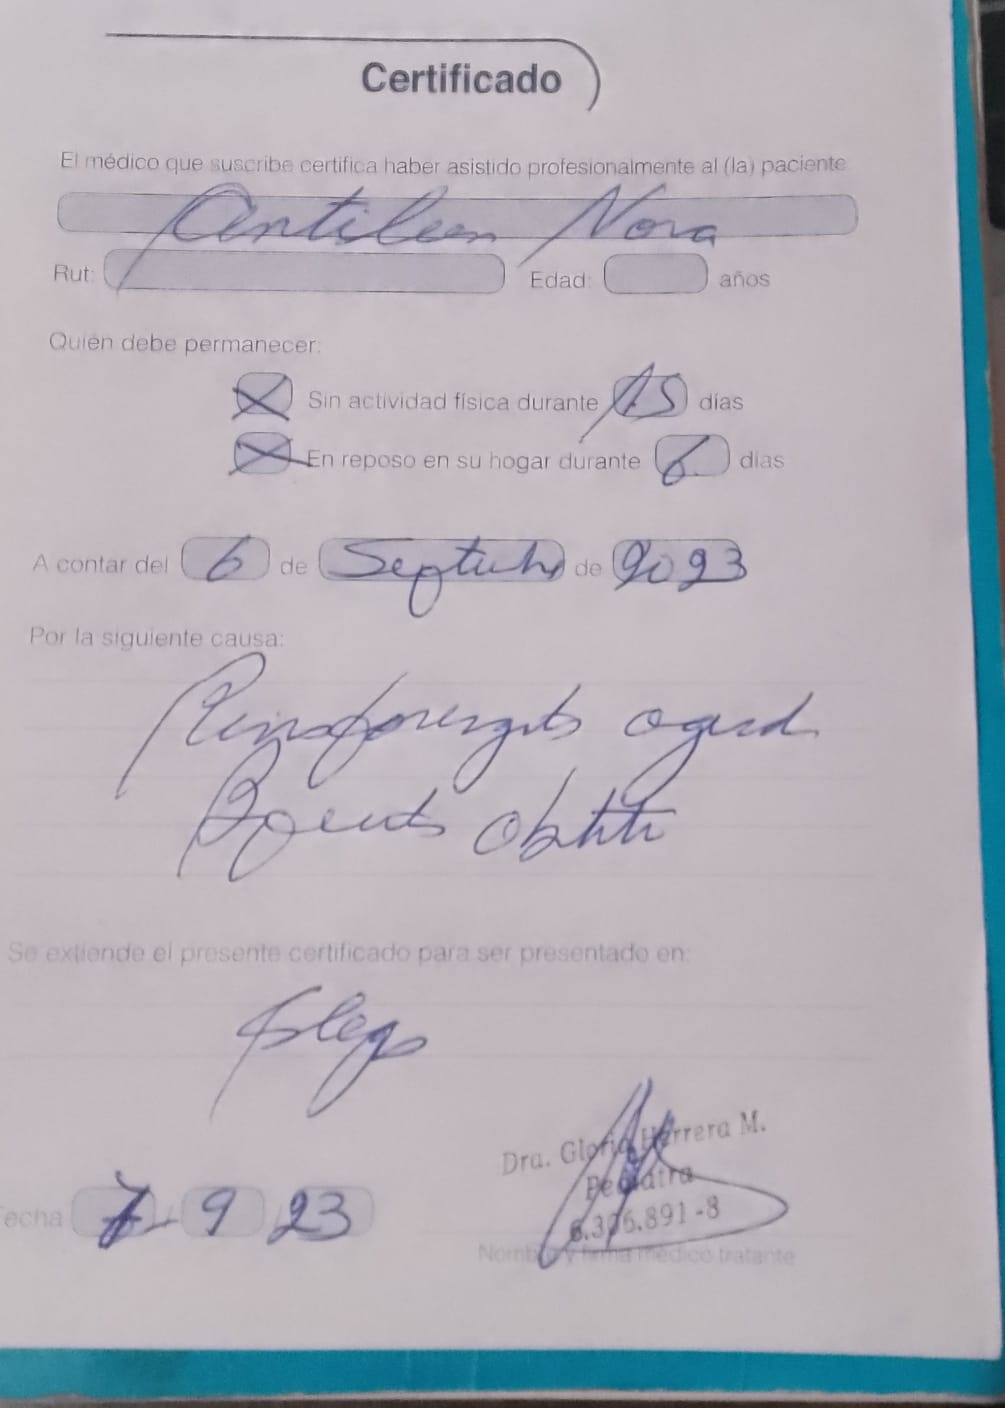 Certificado
El médico que suscribe certifica haber asistido profesionalmente al (la) paciente
Antileen Nova
Rut: Edad: años
Quién debe permanecer:
Sin actividad física durante 15 días
En reposo en su hogar durante 6 días
A contar del 6 de Septiembre de 2023
Por la siguiente causa:
Se extiende el presente certificado para ser presentado en:
Dra. Gloria Herrera M.
Pediatra
echa 7 9 23
Nombre y firma médico tratante